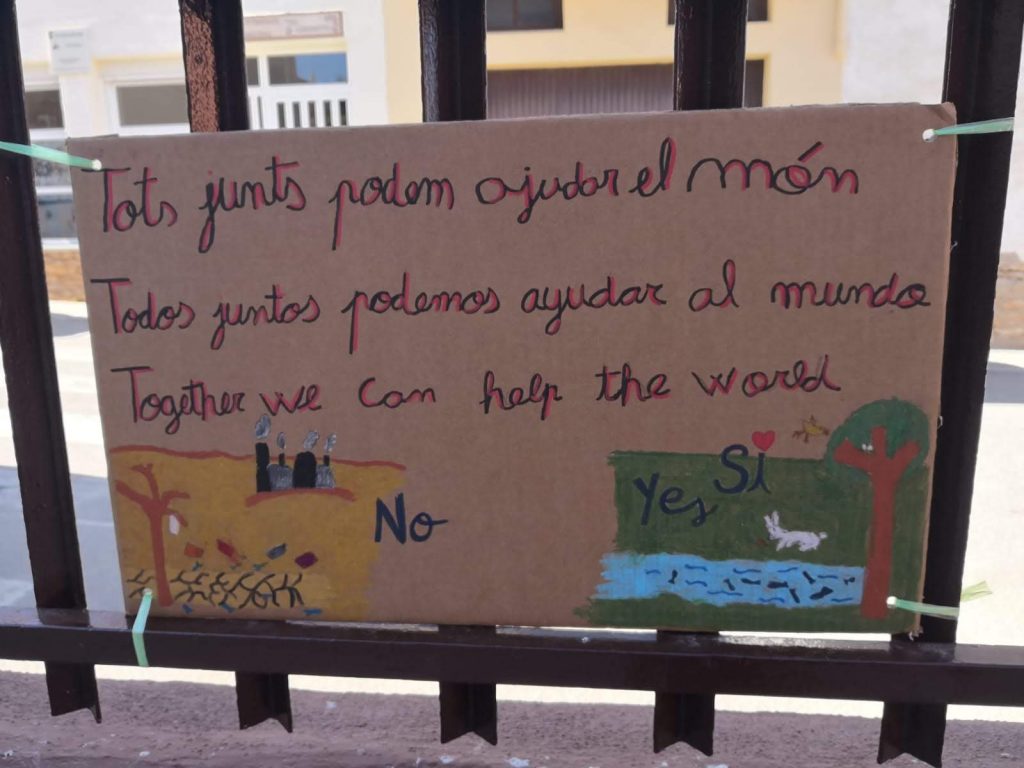 Tots junts podem ajudar el món
Todos juntos podemos ayudar al mundo
Together we can help the world
No
Yes Si